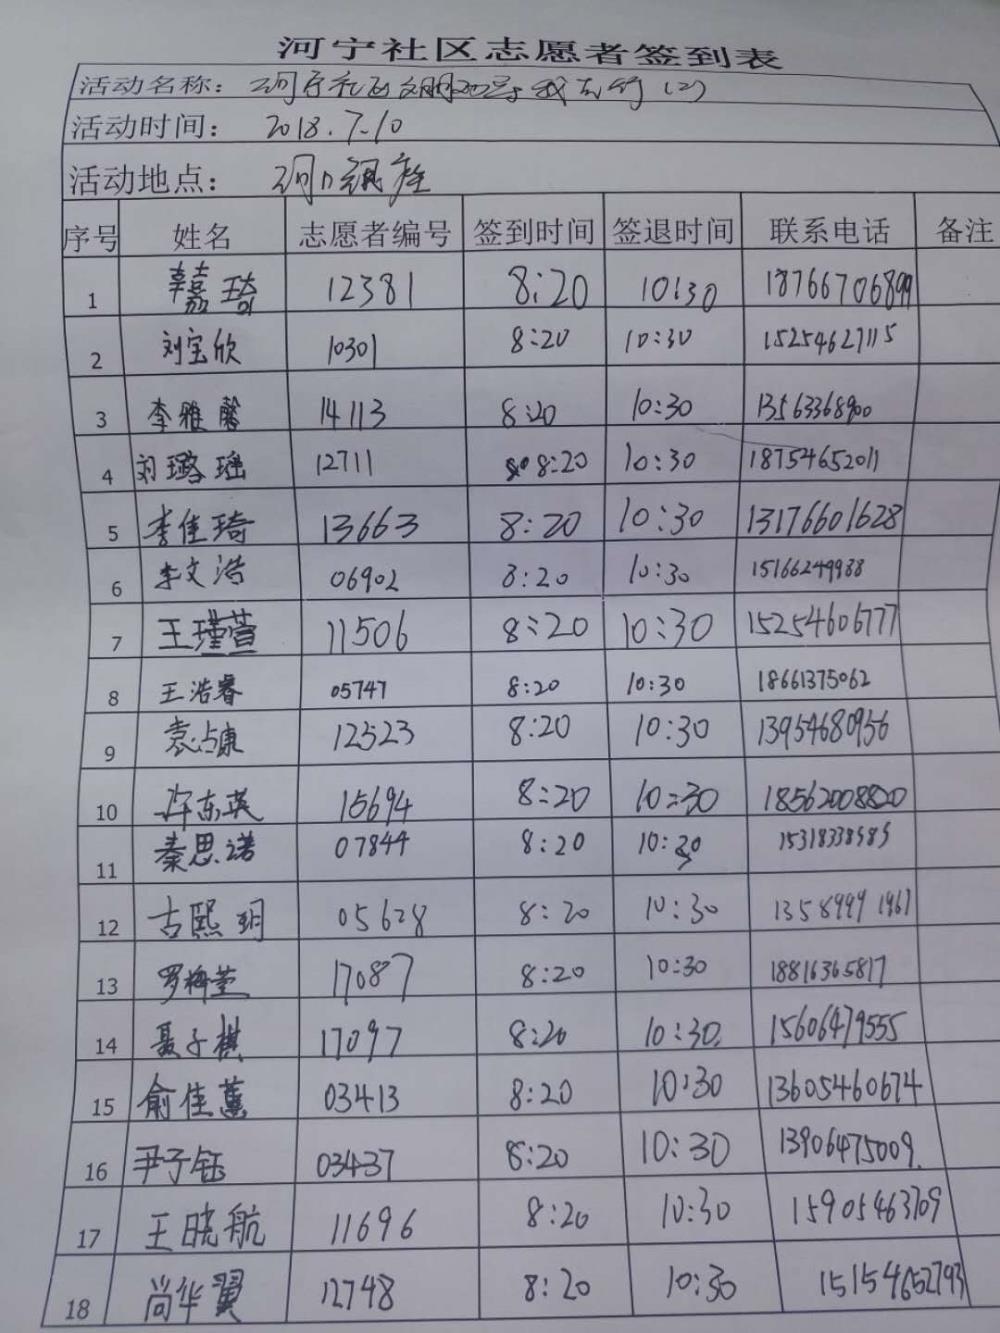 河宁社区志愿者签到表
活动名称：河宁社区文明 我先行（2）
活动时间：2018.7.10
活动地点：河口
序号 姓名 志愿者编号 签到时间 签退时间 联系电话 备注
1 韩嘉琦 12381 8:20 10:30 18766706899
2 刘宝欣 10301 8:20 10:30 15254627115
3 李雅馨 14113 8:20 10:30 13563368900
4 刘璐瑶 12711 8:20 10:30 18754652011
5 李佳琦 13663 8:20 10:30 13176601628
6 李文浩 06902 8:20 10:30 15166249988
7 王瑾萱 11506 8:20 10:30 15254606777
8 王浩睿 05747 8:20 10:30 18661375062
9 袁占康 12523 8:20 10:30 13954680956
10 许东英 15694 8:20 10:30 18562008820
11 秦思诺 07844 8:20 10:30 15318338585
12 古熙玥 05628 8:20 10:30 13589991961
13 罗梅萱 17087 8:20 10:30 18816365817
14 聂子棋 17097 8:20 10:30 15606479555
15 俞佳蕙 03413 8:20 10:30 13605460674
16 尹子钰 03437 8:20 10:30 13906475009
17 王晓航 11696 8:20 10:30 15905463709
18 尚华翼 12748 8:20 10:30 15154652793